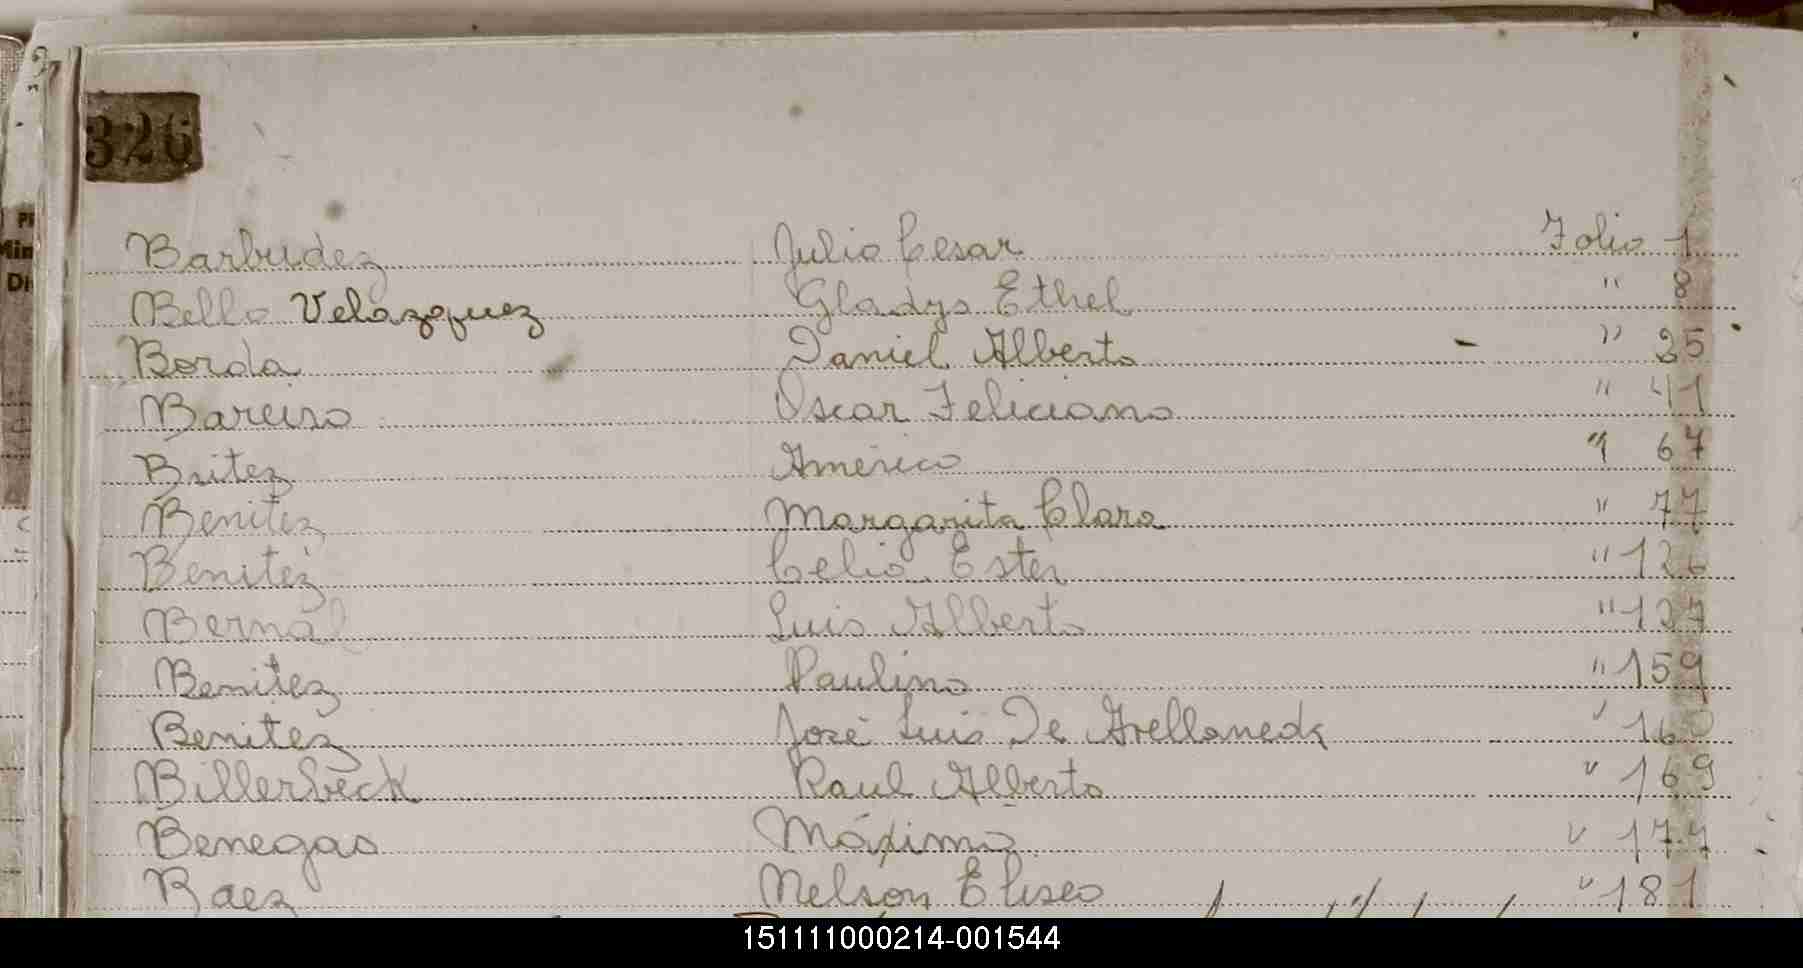 326
Barbudez Julio Cesar Folio 1
Bello Velazquez Gladys Ethel " 8
Borda Daniel Alberto - " 25
Bareiro Oscar Feliciano " 41
Britez Américo " 67
Benitez Margarita Clara " 77
Benitez Celia Ester " 126
Bernal Luis Alberto " 127
Benitez Paulino " 159
Benitez José Luis De Arellaneda " 160
Billerbeck Raul Alberto " 169
Benegas Máximo " 177
Baez Nelson Eliseo " 181
151111000214-001544